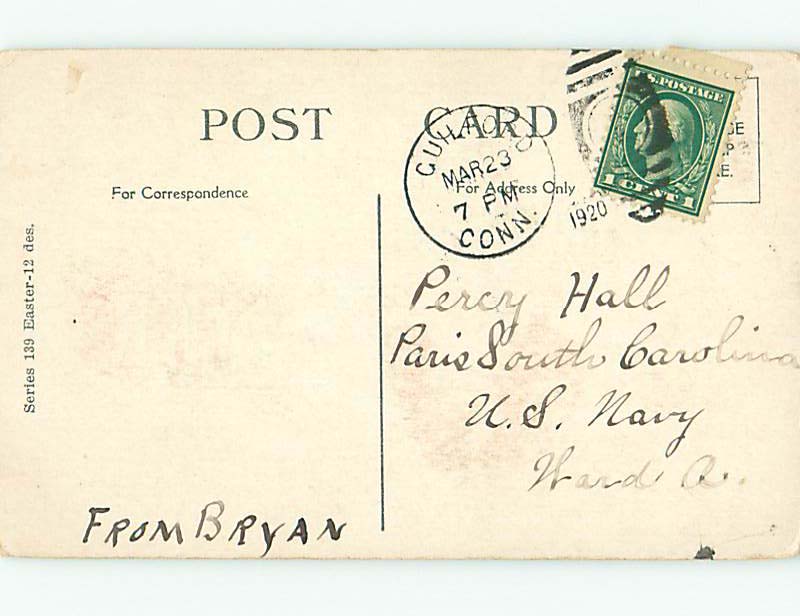 POST CARD
For Correspondence
For Address Only
GUILFORD
MAR 23
7 PM
CONN.
1920
U.S. POSTAGE
1 CENT 1
Series 139 Easter-12 des.
Percy Hall
Paris South Carolina
U.S. Navy
Ward A.
FROM BRYAN